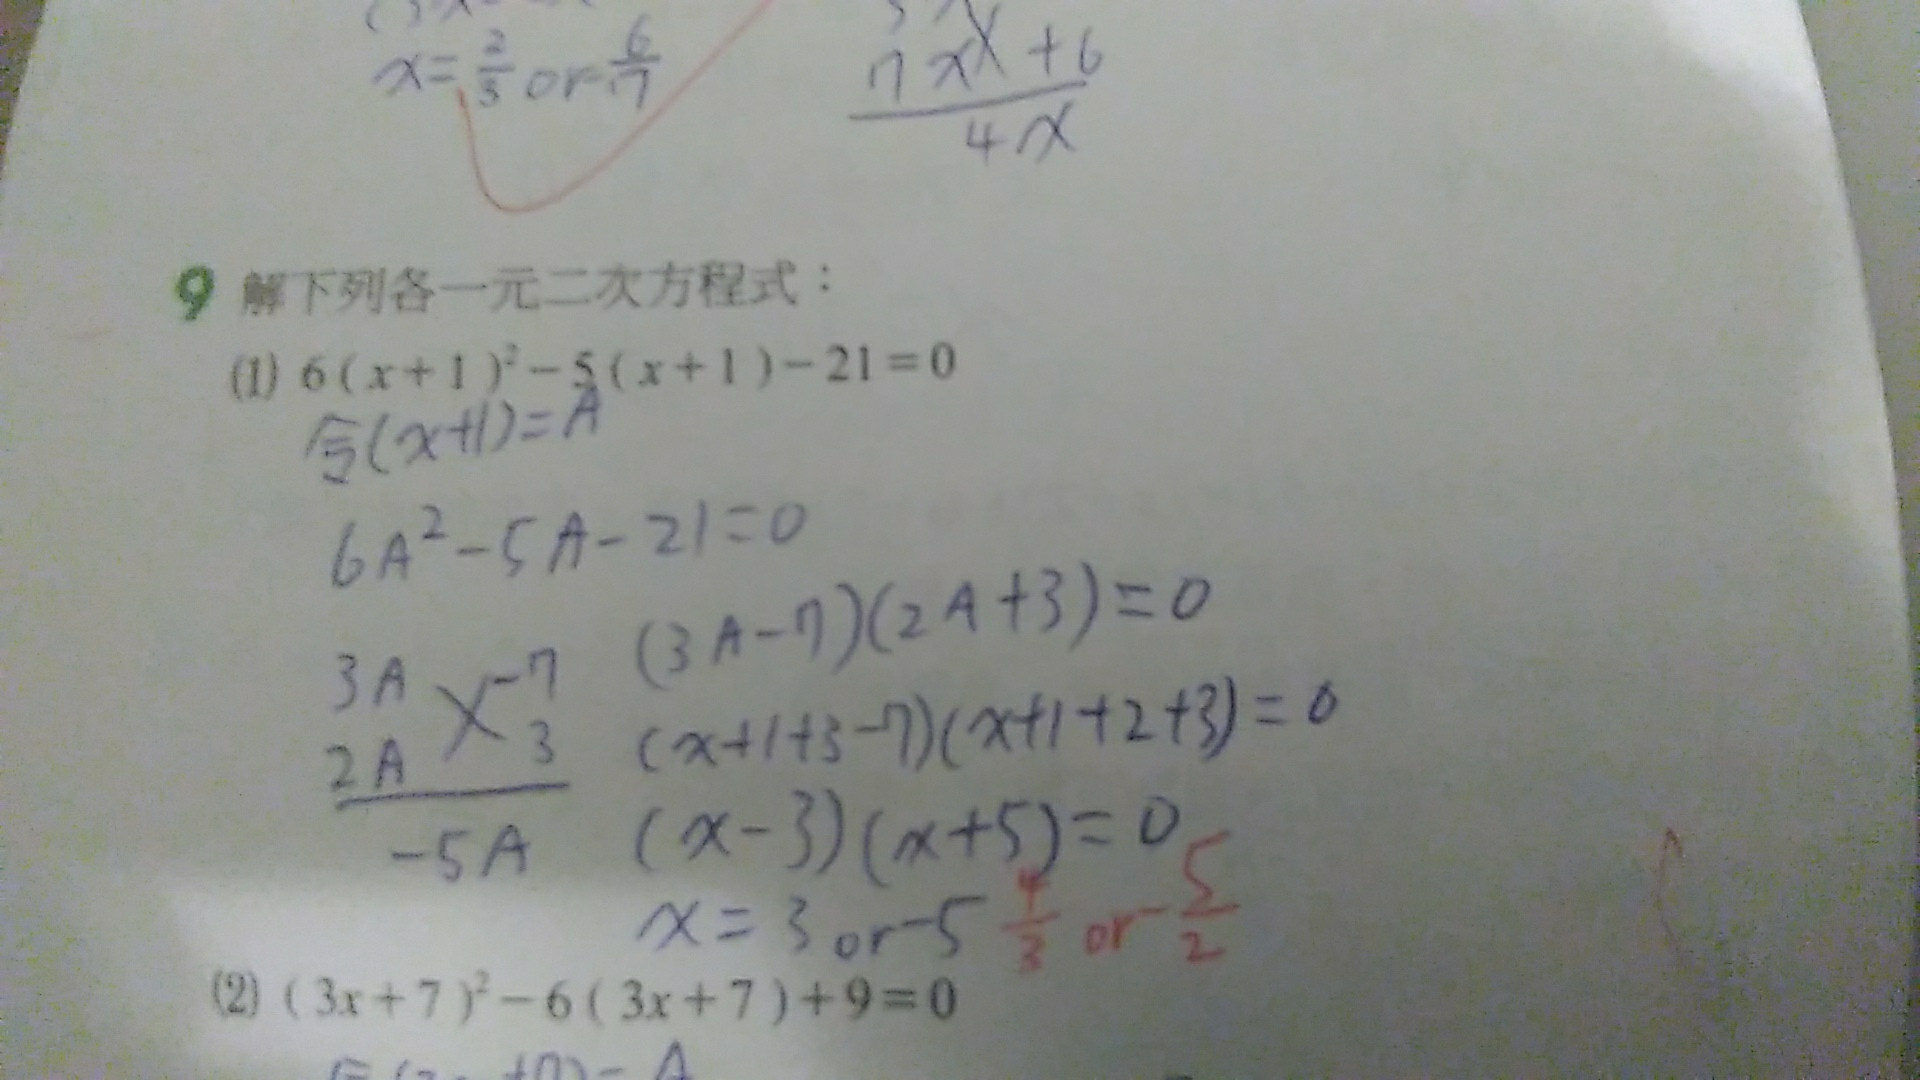 x=2/3 or -6/7
7x +6
4x
9 解下列各一元二次方程式：
(1) 6(x+1)²-5(x+1)-21=0
令(x+1)=A
6A²-5A-21=0
(3A-7)(2A+3)=0
3A -7
2A 3
-5A
(x+1+3-7)(x+1+2+3)=0
(x-3)(x+5)=0
x=3 or -5 4/3 or -5/2
(2) (3x+7)²-6(3x+7)+9=0